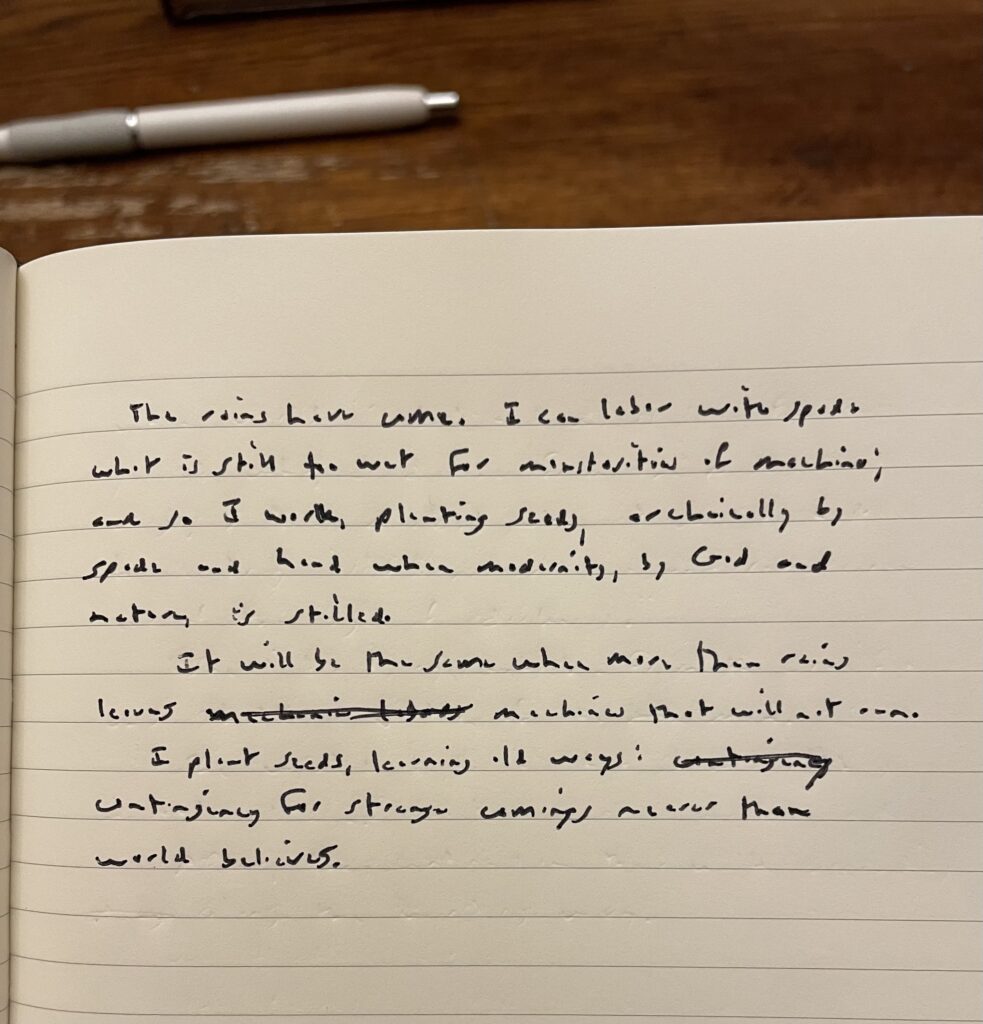 The rains have come. I can labor with spade
what is still too wet for monstrosities of machine;
and so I work, planting seeds, archaically by
spade and hand when modernity, by God and
nature, is stilled.
It will be the same when more than rains
leaves machines that will not run.
I plant seeds, learning old ways: contingency
contingency for strange comings nearer than
world believes.